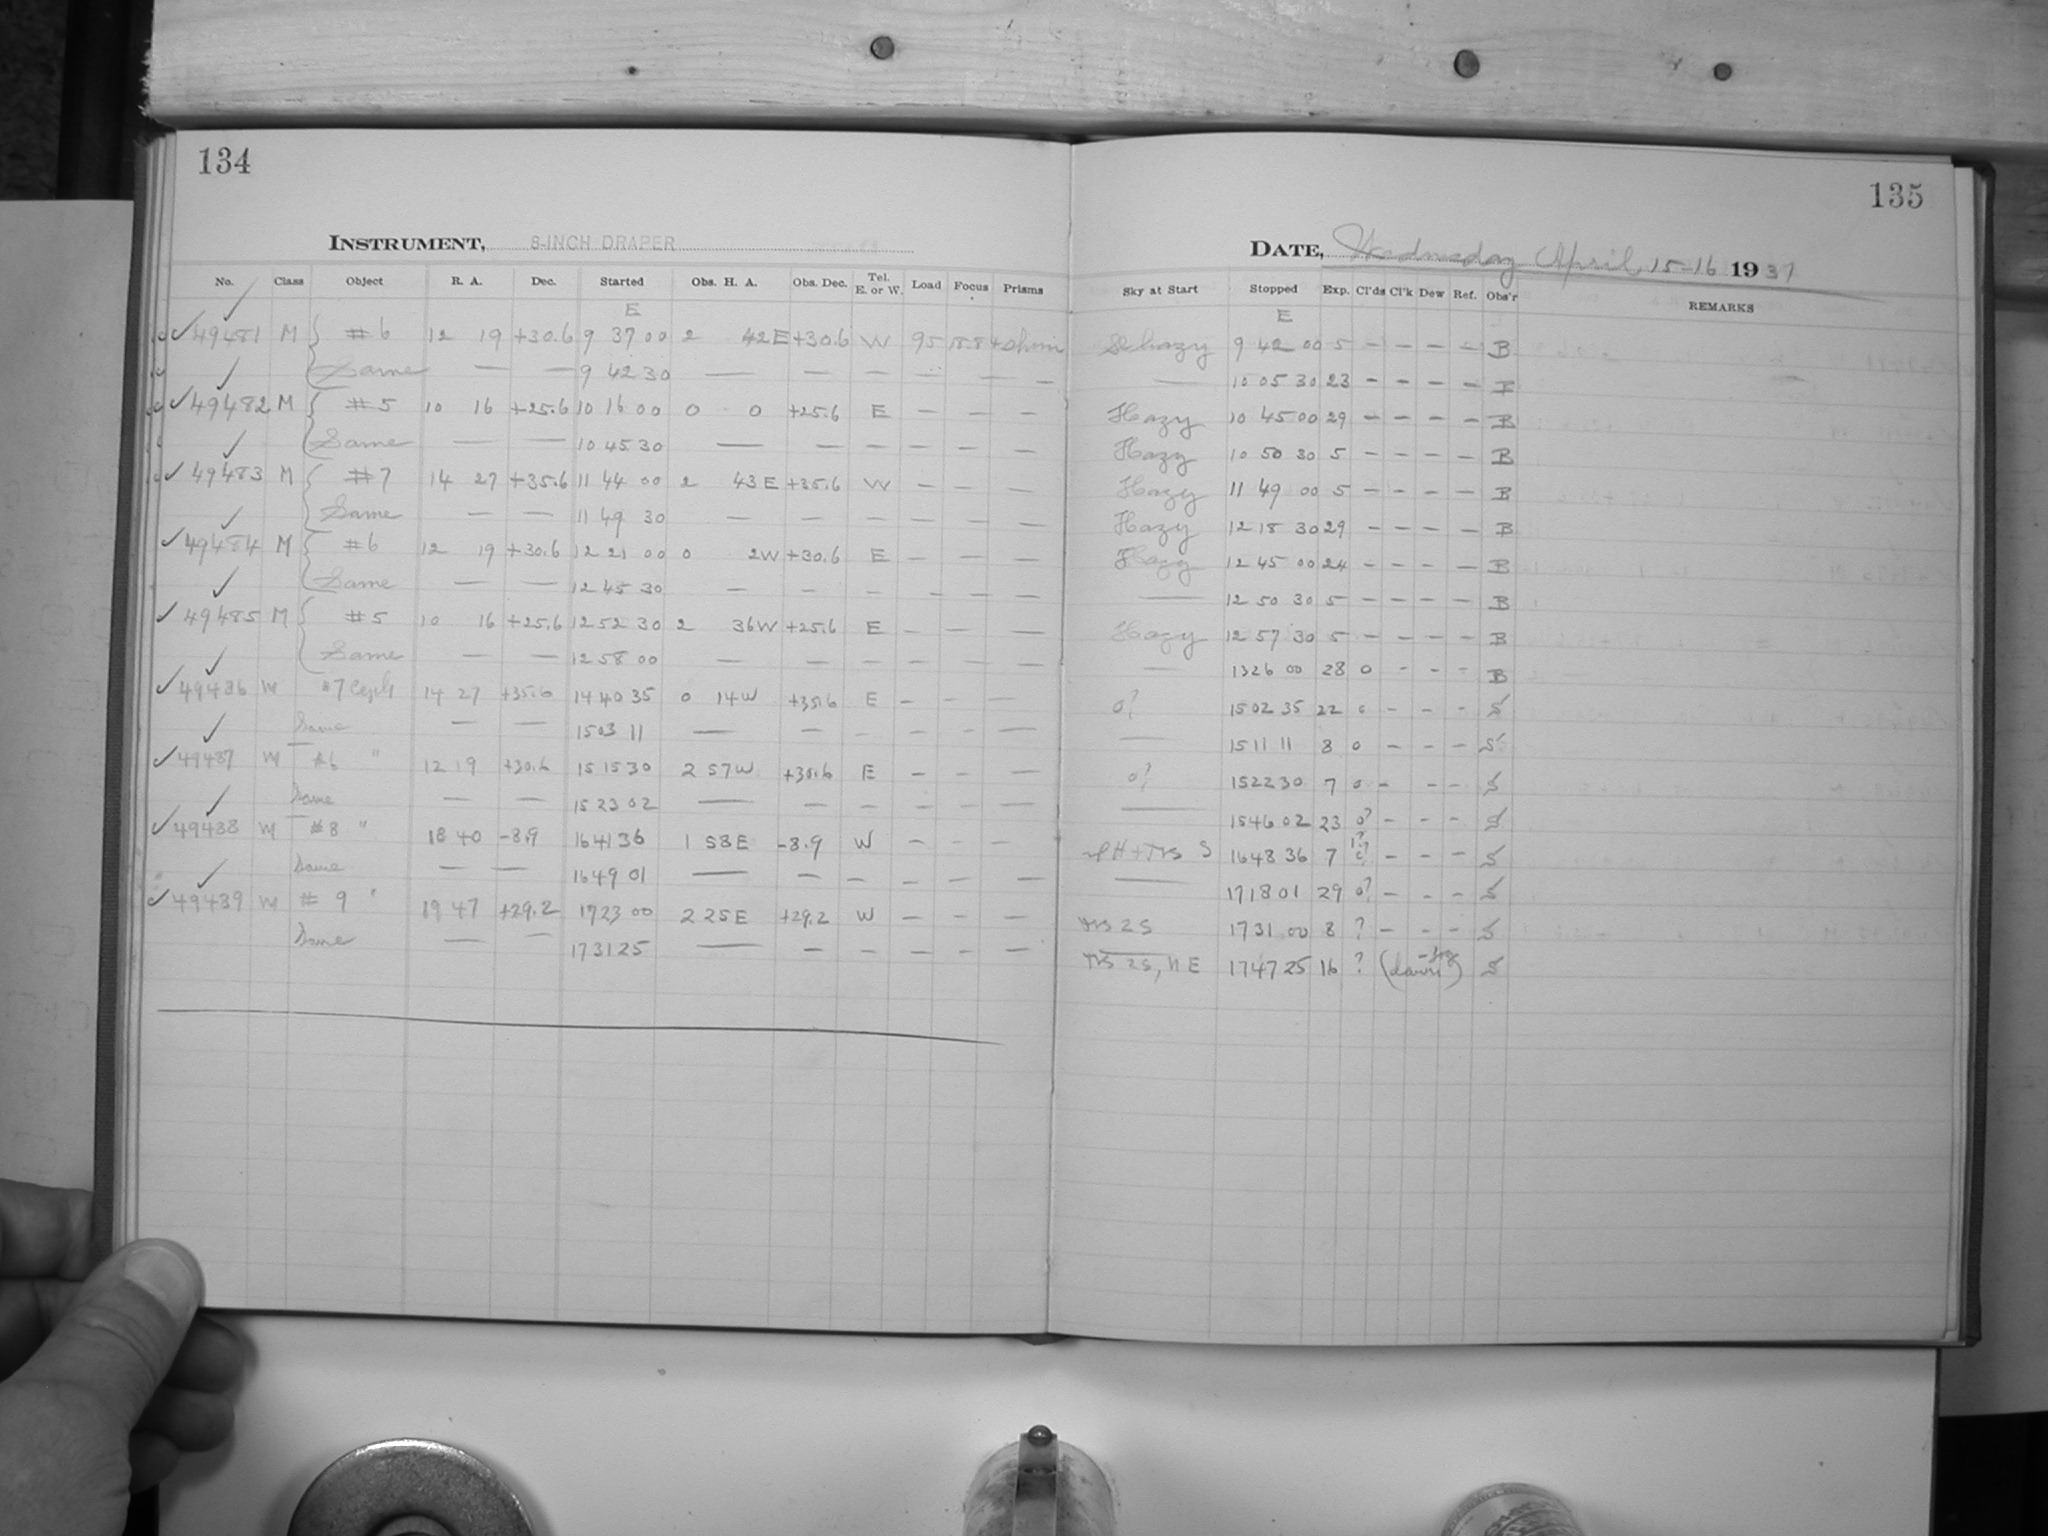 134
135
INSTRUMENT, 8-INCH DRAPER
DATE, Wednesday April 15-16 1937
No. Class Object R. A. Dec. Started Obs. H. A. Obs. Dec. Tel. E. or W. Load Focus Prisms Sky at Start Stopped Exp. Cl'ds Cl'k Dew Ref. Obs'r REMARKS
E E
✓ 49481 M { #6 12 19 +30.6 9 37 00 2 42E +30.6 W 95 Sl hazy 9 42 00 5 – – – – B
✓ Same — — 9 42 30 — — — — — — — 10 05 30 23 – – – – B
✓ 49482 M { #5 10 16 +25.6 10 16 00 0 0 +25.6 E – – – Hazy 10 45 00 29 – – – – B
✓ Same — — 10 45 30 — — — — — — Hazy 10 50 30 5 – – – – B
✓ 49483 M { #7 14 27 +35.6 11 44 00 2 43E +35.6 W – – – Hazy 11 49 00 5 – – – – B
✓ Same — — 11 49 30 — — — — — — Hazy 12 18 30 29 – – – – B
✓ 49484 M { #6 12 19 +30.6 12 21 00 0 2W +30.6 E – – – Hazy 12 45 00 24 – – – – B
✓ Same — — 12 45 30 — — — — — — — 12 50 30 5 – – – – B
✓ 49485 M { #5 10 16 +25.6 12 52 30 2 36W +25.6 E – – – Hazy 12 57 30 5 – – – – B
✓ Same — — 12 58 00 — — — — — — — 13 26 00 28 0 – – – B
✓ 49486 W #7 Ceph 14 27 +35.6 14 40 35 0 14W +35.6 E – – – 0? 15 02 35 22 0 – – – S
✓ Same — — 15 03 11 — — — — — — — 15 11 11 8 0 – – – S
✓ 49487 W #6 " 12 19 +30.6 15 15 30 2 57W +30.6 E – – – 0? 15 22 30 7 0 – – – S
✓ Same — — 15 23 02 — — — — — — — 15 46 02 23 0? – – – S
✓ 49438 W #8 " 18 40 -8.9 16 41 36 1 58E -8.9 W – – – S 16 48 36 7 – – – S
✓ Same — — 16 49 01 — — — — — — — 17 18 01 29 0? – – – S
✓ 49439 W # 9 " 19 47 +29.2 17 23 00 2 25E +29.2 W – – – 2 S 17 31 00 8 ? – – – S
Same — — 17 31 25 — — — — — — 2 S, N E 17 47 25 16 ? (dawn) S